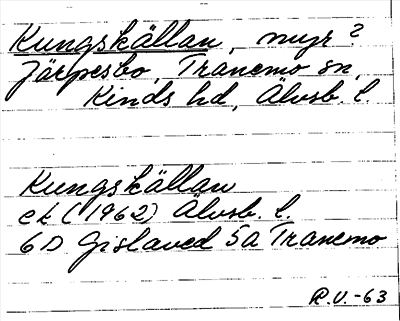 Kungskällan, myr?
Järpesbo, Tranemo sn,
Kinds hd, Älvsb. l.
Kungskällan
ek (1962) Älvsb. l.
6D Gislaved 5a Tranemo
R.V.-63